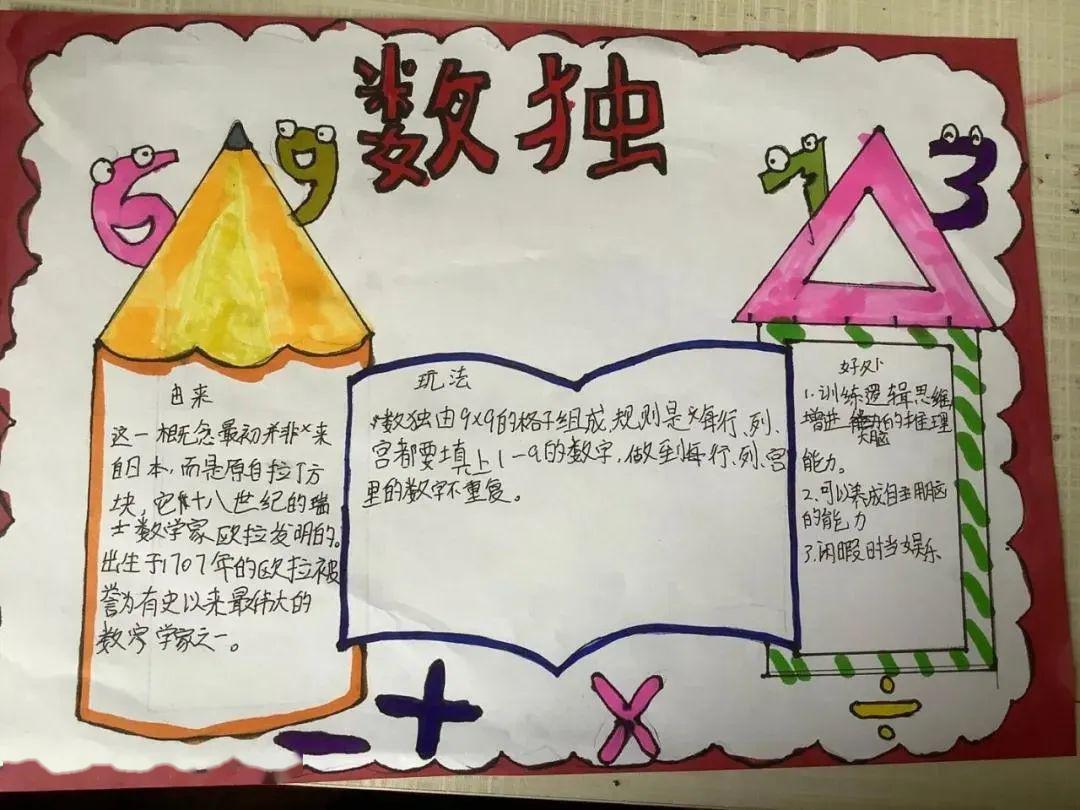 数独
由来
这一概念最初并非来
自日本,而是原自拉丁方
块,它是十八世纪的瑞
士数学家欧拉发明的。
出生于1707年的欧拉被
誉为有史以来最伟大的
数字学家之一。
玩法
数独由9×9的格子组成,规则是每行、列、
宫都要填上1-9的数字,做到每行、列、宫
里的数字不重复。
好处
1.训练逻辑思维
增进大脑的推理
能力。
2.可以养成自主用脑
的能力
3.闲暇时当娱乐
6
9
7
3
-
+
×
÷